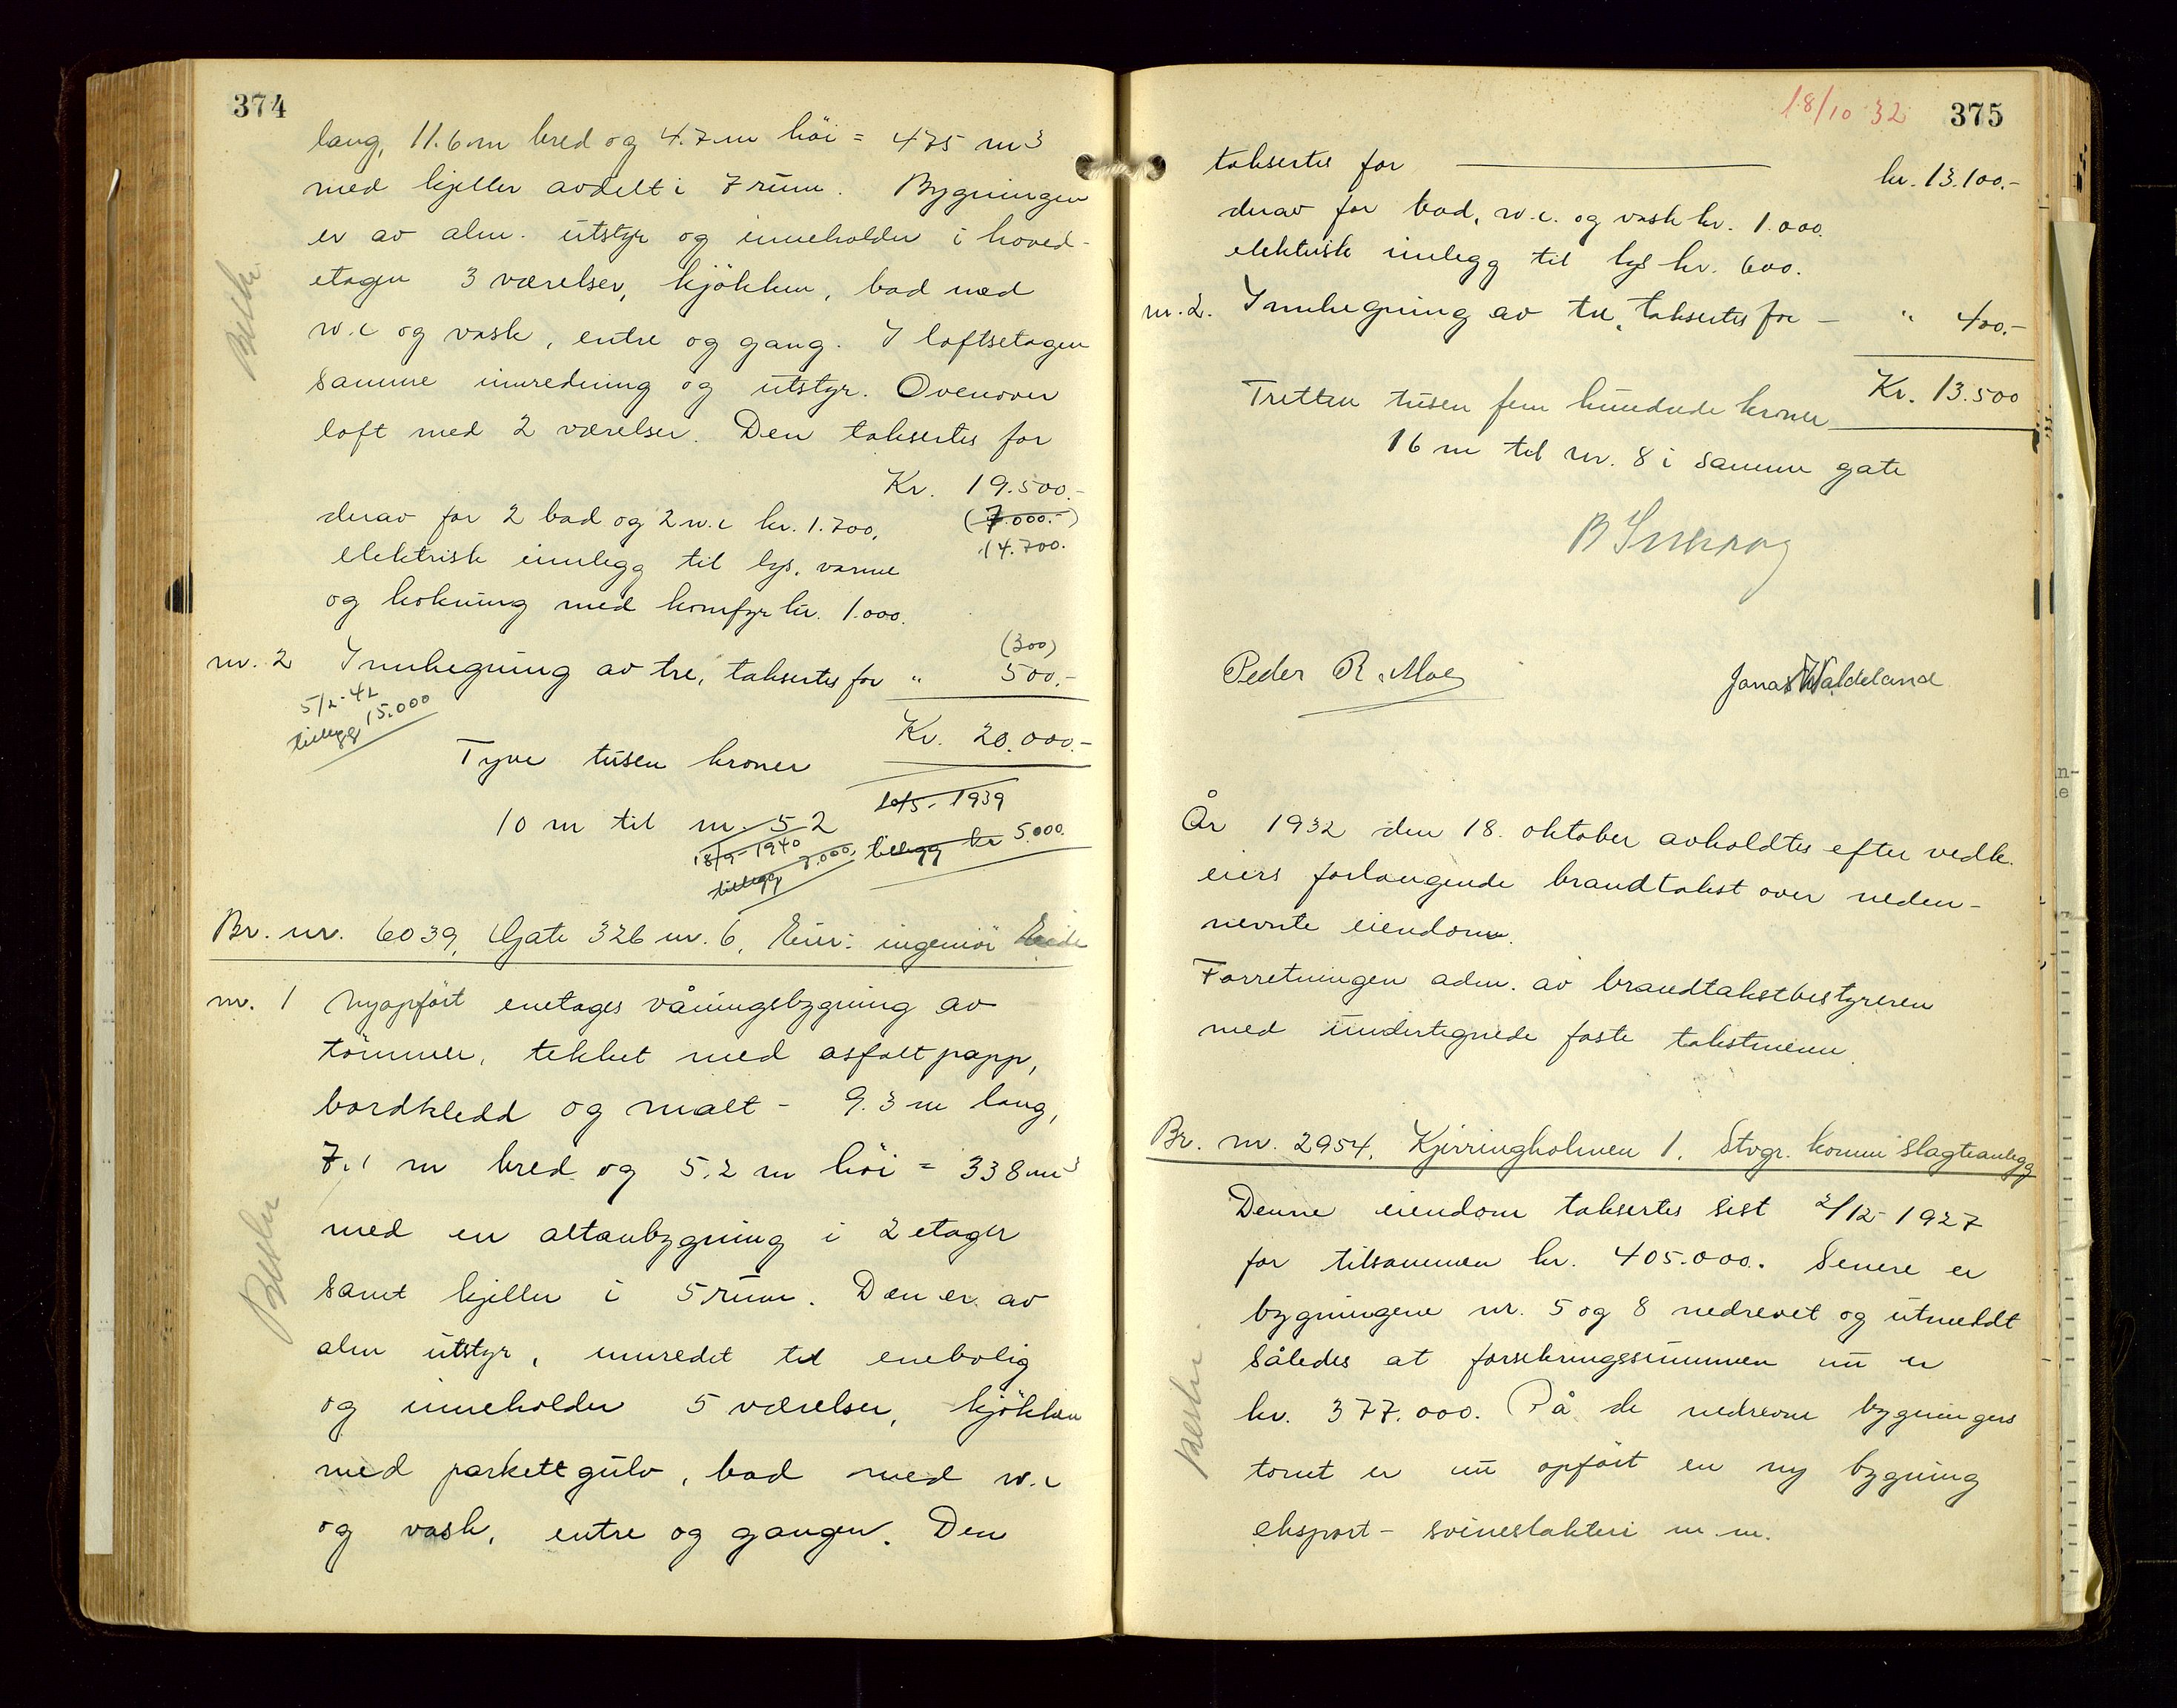 374
lang, 11.6 m bred og 4.7 m höi = 475 m3
med kjeller avdelt i 7 rum. Bygningen
er av alm. utstyr og inneholder i hoved-
etagen 3 værelser, kjökken, bad med
w.c og vask, entre og gang. I loftsetagen
samme innredning og utstyr. Ovenover
loft med 2 værelser. Den taksertes for
Kr. 19.500.-
derav for 2 bad og 2 w.c kr. 1.700, (7.000.-)
elektrisk innlegg til lys, varme 14.700.
og kokning med komfyr kr. 1.000.
(300)
nr. 2 Innhegning av tre, taksertes for " 500.-
5/2-42
tillegg 15.000
Kr. 20.000.-
Tyve tusen kroner
10/5-1939
10 m til nr. 52
tillegg kr 5.000.
18/9-1940
tillegg 7.000,
Br. nr. 6039, Gate 326 nr. 6, Eier: ingeniör Eide
nr. 1 Nyopfört enetages våningsbygning av
tömmer, tekket med asfaltpapp,
bordkledd og malt - 9.3 m lang,
7.1 m bred og 5.2 m höi = 338 m3
med en altanbygning i 2 etager
samt kjeller i 5 rum. Den er av
alm utstyr, innredet til enebolig
og inneholder 5 værelser, kjökken
med parkettgulv, bad med w.c
og vask, entre og ganger. Den
18/10 32 375
taksertes for kr. 13.100.-
derav for bad, w.c. og vask kr. 1.000.
elektrisk innlegg til lys kr. 600.
nr. 2. Innhegning av tre, taksertes for - " 400.-
Kr. 13.500
Tretten tusen fem hundrede kroner
16 m til nr. 8 i samme gate
Peder R. Moe Jonas Waldeland
År 1932 den 18. oktober avholdtes efter vedk.
eiers forlangende brandtakst over neden-
nevnte eiendom.
Forretningen adm. av brandtakstbestyreren
med undertegnede faste takstmenn.
Br. nr. 2954, Kjerringholmen 1. Stvgr. komm slagteanlegg
Denne eiendom taksertes sist 2/12-1927
for tilsammen kr. 405.000. Senere er
bygningene nr. 5 og 8 nedrevet og utmeldt
således at forsikringssummen nu er
kr. 377.000. På de nedrevne bygningers
tomt er nu opfört en ny bygning
eksport- svineslakteri m.m.